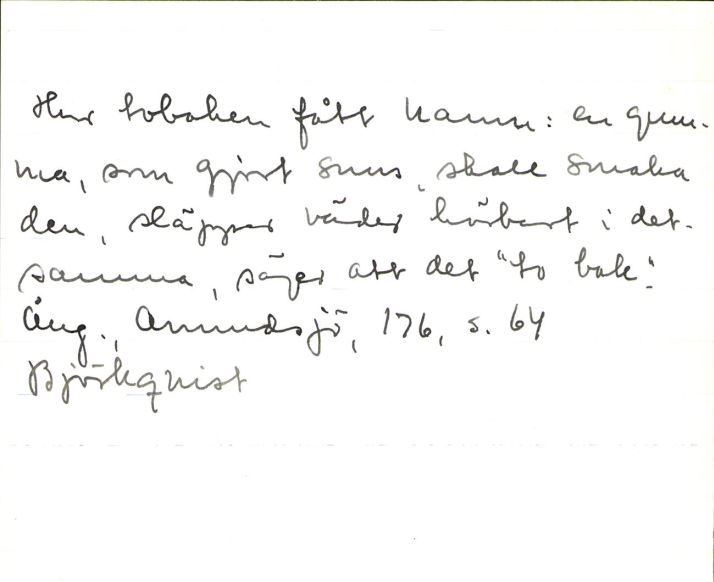 Hur tobaken fått namn: en gum-
ma, som gjort snus, skall smaka
den, släpper väder hörbart i det-
samma, säger att det "to bak".
Ång., Anundsjö, 176, s. 64
Björkqvist